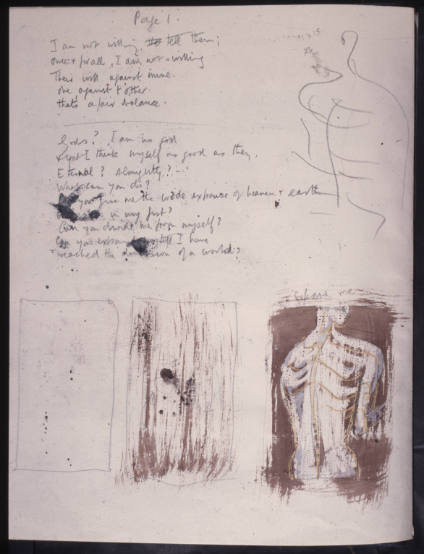 Page 1.
I am not willing, tell them;
once & for all, I am not willing
Their will against mine.
one against & other
thats a fair balance.
Gods? I am no god
And I think myself as good as they.
Eternal? Almighty?
What can you do?
you give me the wide expanse of heaven & earth
in my fist?
Can you divide me from myself?
Can you expand till I have
reached the dimension of a world?